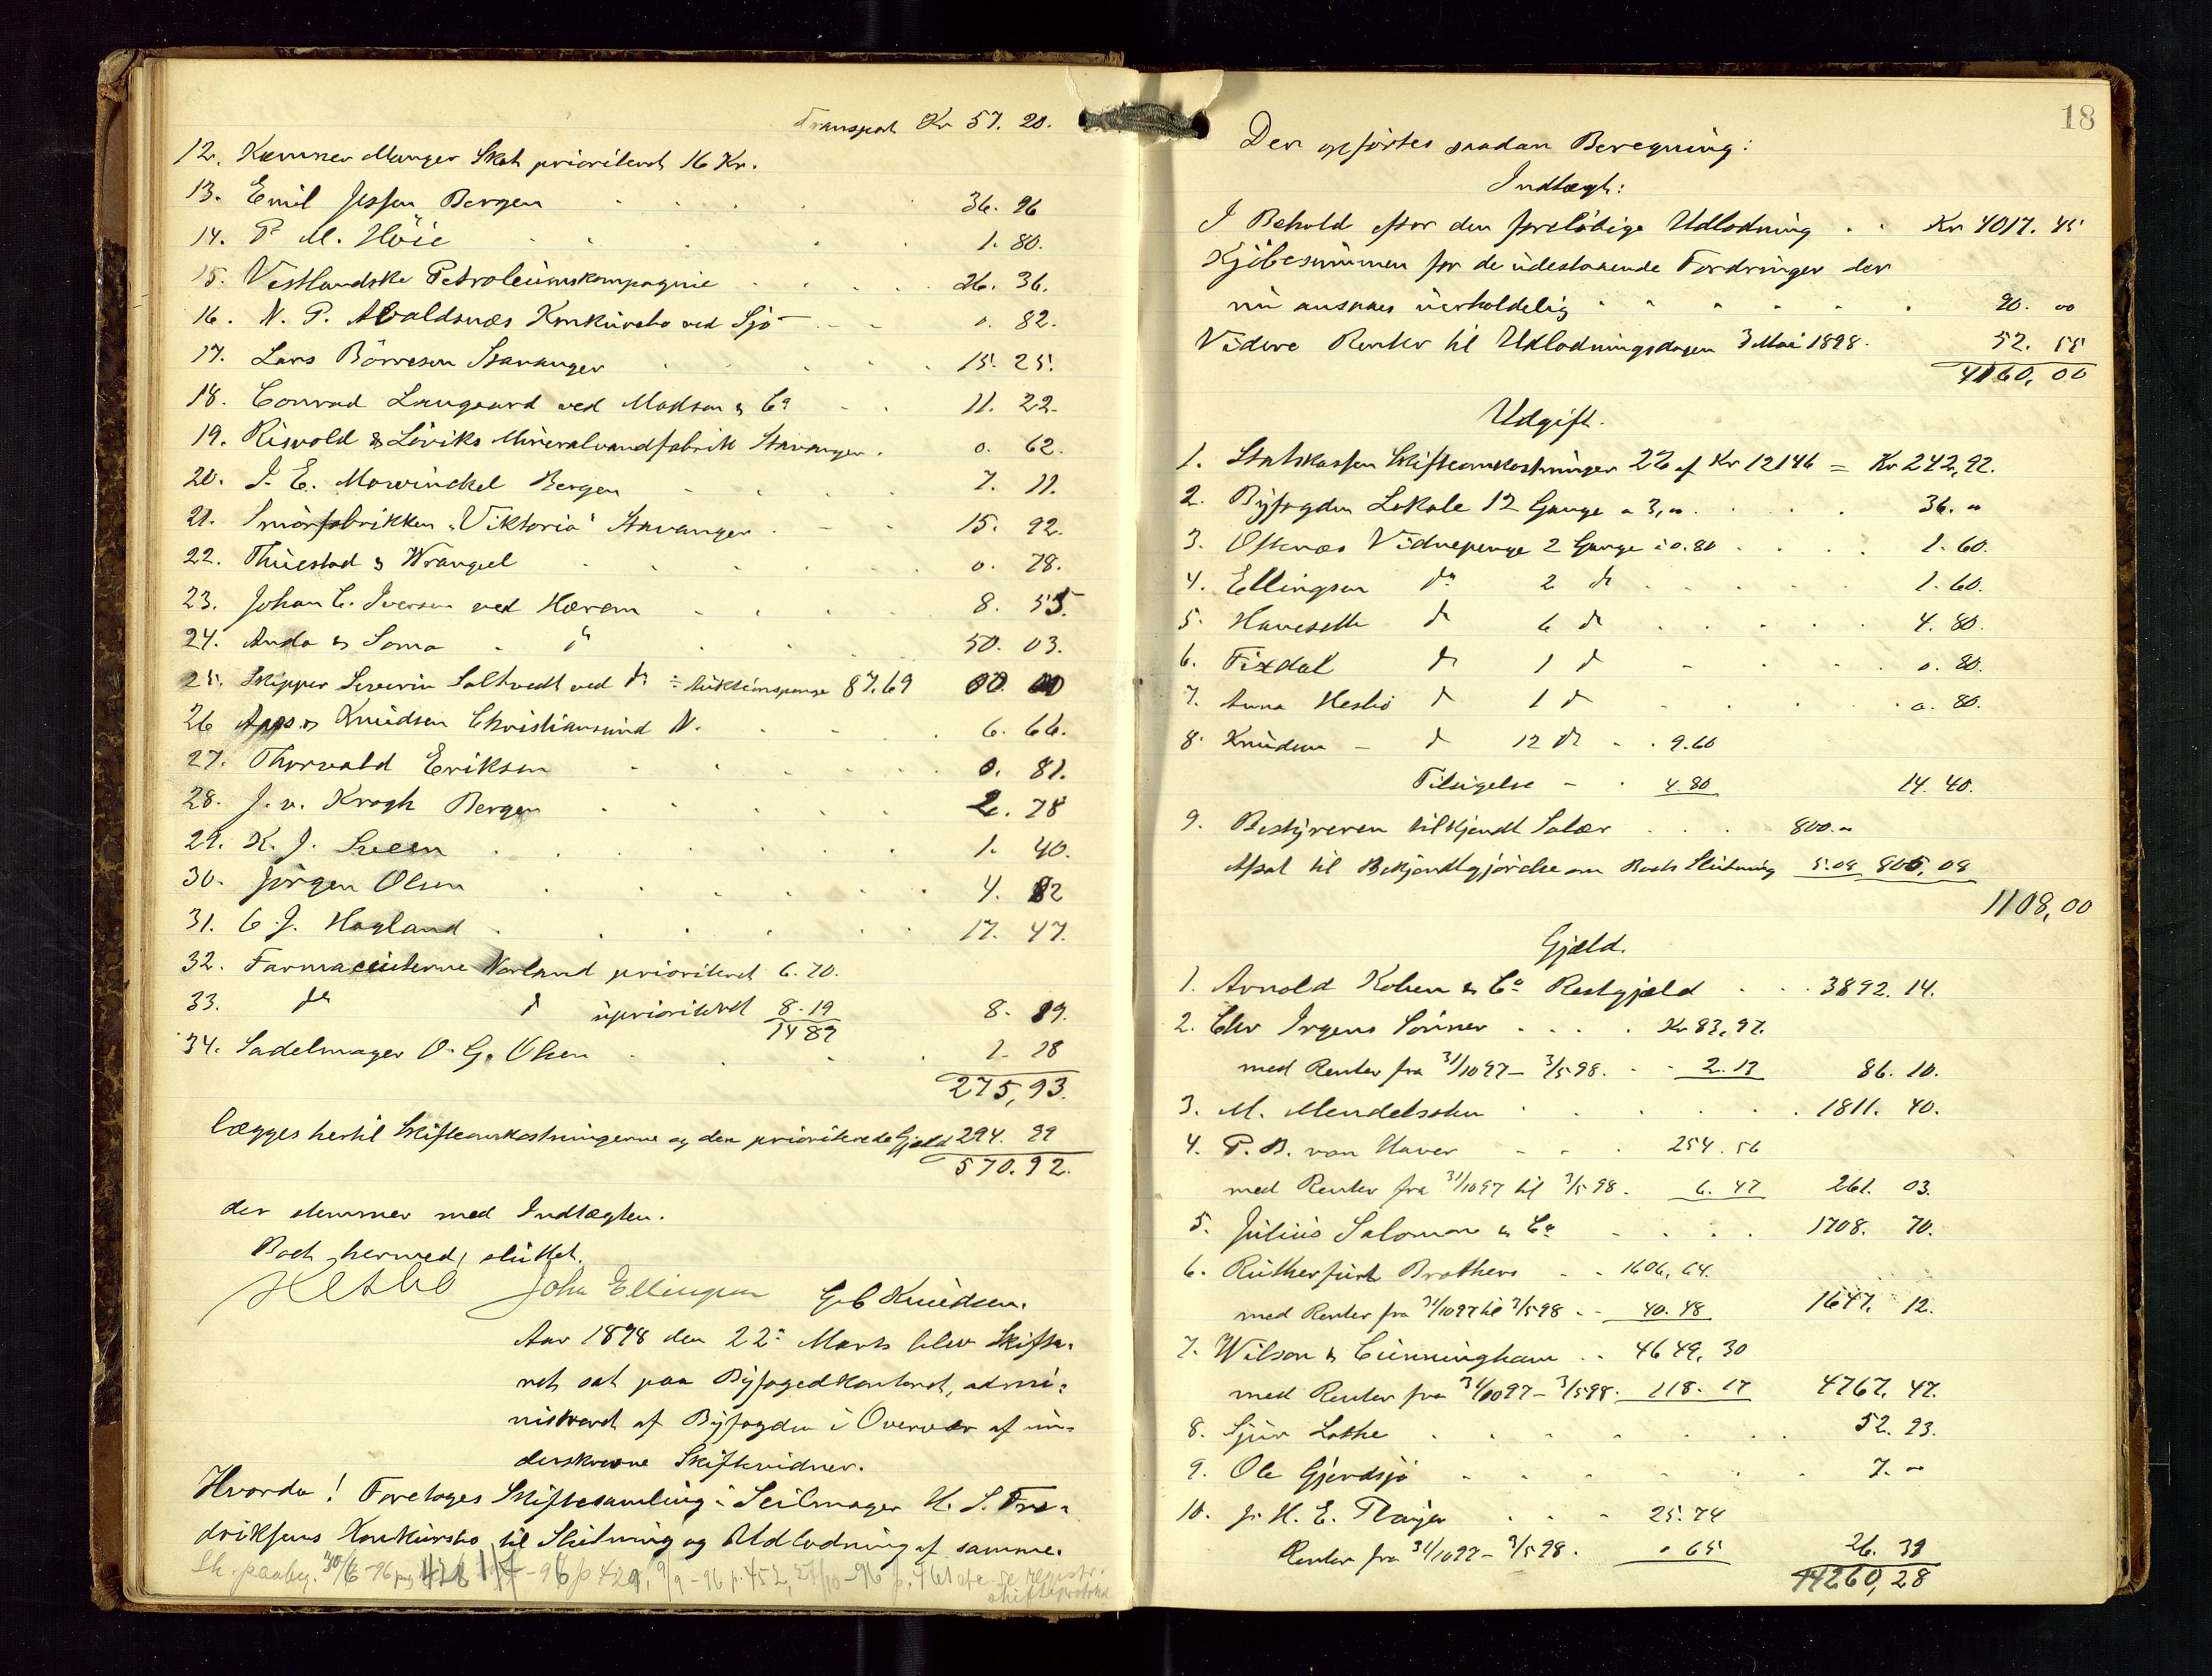 Transport Kr 57. 20.
12. Kæmner Manger Skat prioriteret 16 Kr.
13. Emil Jessen Bergen 36. 96
14. P. M. Höie 1. 80.
15. Vestlandske Petroleumskompagnie 26. 36.
16. N. P. Avaldsnæs Konkursbo ved Sjö 0. 82.
17. Lars Börresen Stavanger 15. 25.
18. Conrad Langaard ved Madsen & Co 11. 22.
19. Risvold & Löviks Mineralvandfabrik Stavanger. 0. 62.
20. J. E. Mowinckel Bergen 7. 11.
21. Smörfabrikken "Viktoria" Stavanger 15. 92.
22. Thuestad & Wrangel 0. 78.
23. Johan C. Iversen ved Hærem 8. 55.
24. Anda & Soma do 50. 03.
25. Skipper Severin Saltvedt ved do ÷ Auktionspenge 87.69 00. 00
26 Apps. & Knudsen Christiansund N. 6. 66.
27. Thorvald Eriksen 0. 81.
28. J. v. Krogh Bergen 2. 78
29. K. J. Sveen 1. 40.
30. Jörgen Olsen 4. 82
31. C. J. Hagland 17. 47.
32. Farmaceuterne Norland prioriteret 6.70.
33. do do uprioriteret 8.19 8. 19.
14 89
34. Sadelmager O. G. Olsen 1. 28
275,93.
lægges hertil Skifteomkostningerne og den prioriterede Gjæld 294. 99
570. 92.
der stemmer med Indtægten.
Boet hermed sluttet.
Hesbö John Ellingsen G C Knudsen.
Aar 1898 den 22de Marts blev Skifte-
ret sat paa Byfogedkontoret, admi-
nistreret af Byfogden i Overvær af un-
derskrevne Skiftevidner.
Hvorda! Foretoges Skiftesamling i Seilmager H. S. Fre-
driksens Konkursbo til Slutning og Udlodning af samme.
Sk. paabeg. 30/6-96 pag 428 1/7-96 p 429, 9/9-96 p. 452, 27/10-96 p. 461 se registr.
skifteprotokol
18
Der opförtes saadan Beregning:
Indtægt:
I Behold efter den forelöbige Udlodning Kr 4017. 45
Kjöbesummen for de udestaaende Fordringer der
nu ansaaes uerholdelig 90. 00
Videre Renter til Udlodningsdagen 3 Mai 1898. 52. 55
4160,00
Udgift.
1. Statskassen Skifteomkostninger 2% af Kr 12146 = Kr 242,92.
2. Byfogden Lokale 12 Gange a 3,00 36. 00
3. Oftenæs Vidnepenge 2 Gange à 0.80 1. 60.
4. Ellingsen do 2 do 1. 60.
5. Haveseth do 6 do 4. 80.
6. Tixdal do 1 do 0. 80.
7. Anna Hesbö do 1 do 0. 80.
8. Knudsen – do 12 do 9.60
Tilsigelse 4.80 14. 40.
9. Bestyreren tilkjendt Salær 800.00
Afsat til Bekjendtgjörelse om Boets Slutning 5.08 805,08
1108,00
Gjæld.
1. Arnold Kohen & Co Restgjæld 3892. 14.
2. Chr Irgens Sönner Kr 83,97.
med Renter fra 31/10 97 – 3/5 98. 2.13 86. 10.
3. M. Mendelsohn 1811. 40.
4. P. B. van Haver 254. 56
med Renter fra 31/10 97 til 3/5 98. 6. 47 261. 03.
5. Julius Salomon & Co 1708. 70.
6. Rutherfurt Brothers 1606,64.
med Renter fra 31/10 97 til 3/5 98 40. 48 1647. 12.
7. Wilson & Cunningham 4649,30
med Renter fra 31/10 97 – 3/5 98. 118. 17 4767. 47.
8. Sjur Lothe 52. 93.
9. Ole Gjerdsjö 7. 00
10. J. H. E. Plaijer 25. 74
Renter fra 31/10 97 – 3/5 98. 0 65 26. 39
14260,28